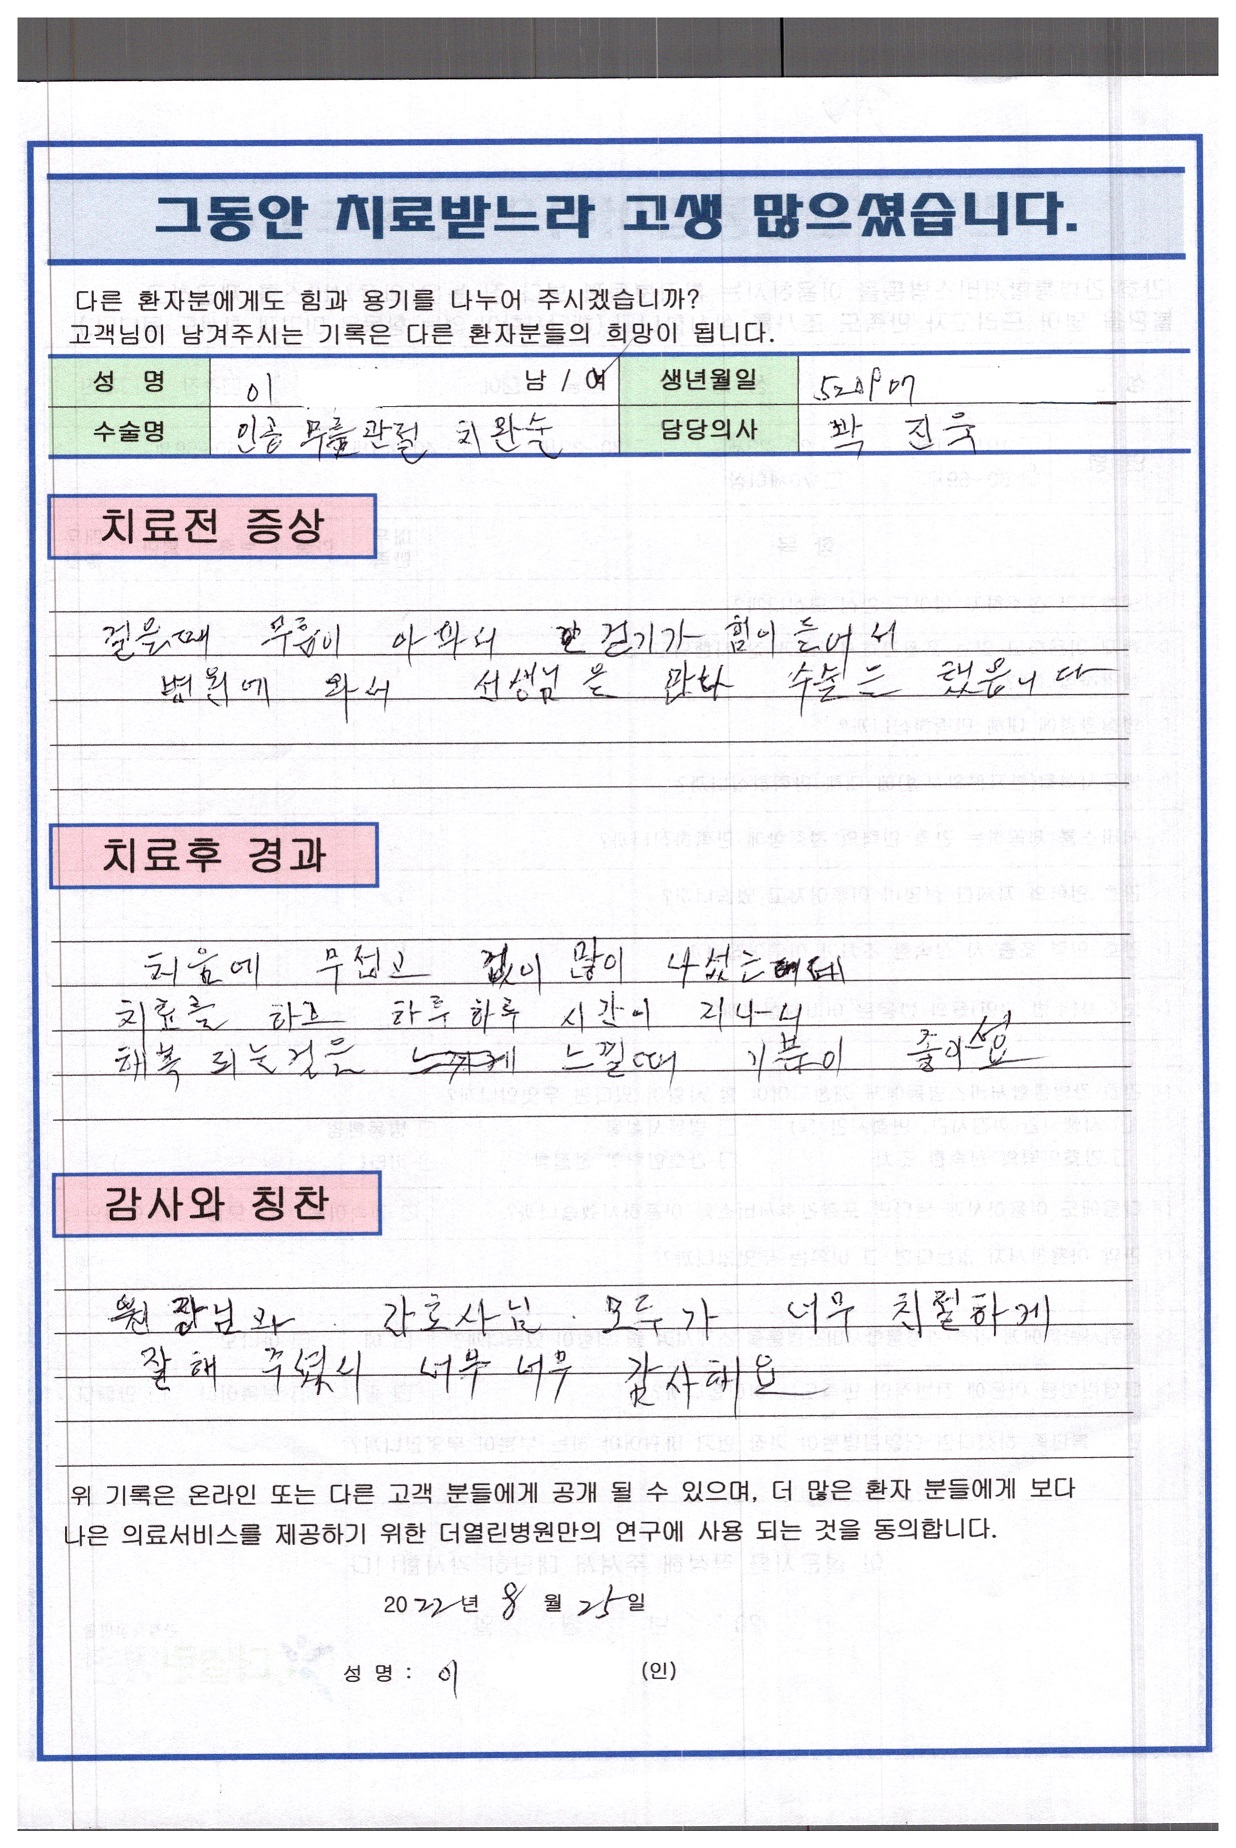 그동안 치료받느라 고생 많으셨습니다.
다른 환자분에게도 힘과 용기를 나누어 주시겠습니까?
고객님이 남겨주시는 기록은 다른 환자분들의 희망이 됩니다.
성 명 이 남 / 여 생년월일
수술명 인공 무릎관절 치환술 담당의사 곽 진욱
치료전 증상
걸을때 무릎이 아파서 걷기가 힘이들어서
병원에 와서 선생님을 만나 수술는 했읍니다
치료후 경과
처음에 무섭고 겂이 많이 나섰는데
치료를 하고 하루하루 시간이 지나니
해복 되는걸을 느낄때 기분이 좋아섰요
감사와 칭찬
원장님과 간호사님 모두가 너무 친절하게
잘해 주셨서 너무 너무 감사해요
위 기록은 온라인 또는 다른 고객 분들에게 공개 될 수 있으며, 더 많은 환자 분들에게 보다
나은 의료서비스를 제공하기 위한 더열린병원만의 연구에 사용 되는 것을 동의합니다.
2022년 8월 25일
성 명 : 이 (인)